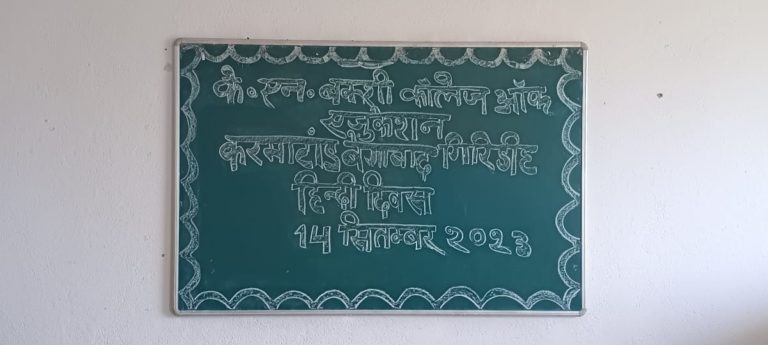 के.एन.बक्शी कॉलेज ऑफ
एजुकेशन
करमाटांड बेंगाबाद गिरिडीह
हिन्दी दिवस
14 सितम्बर २०२३